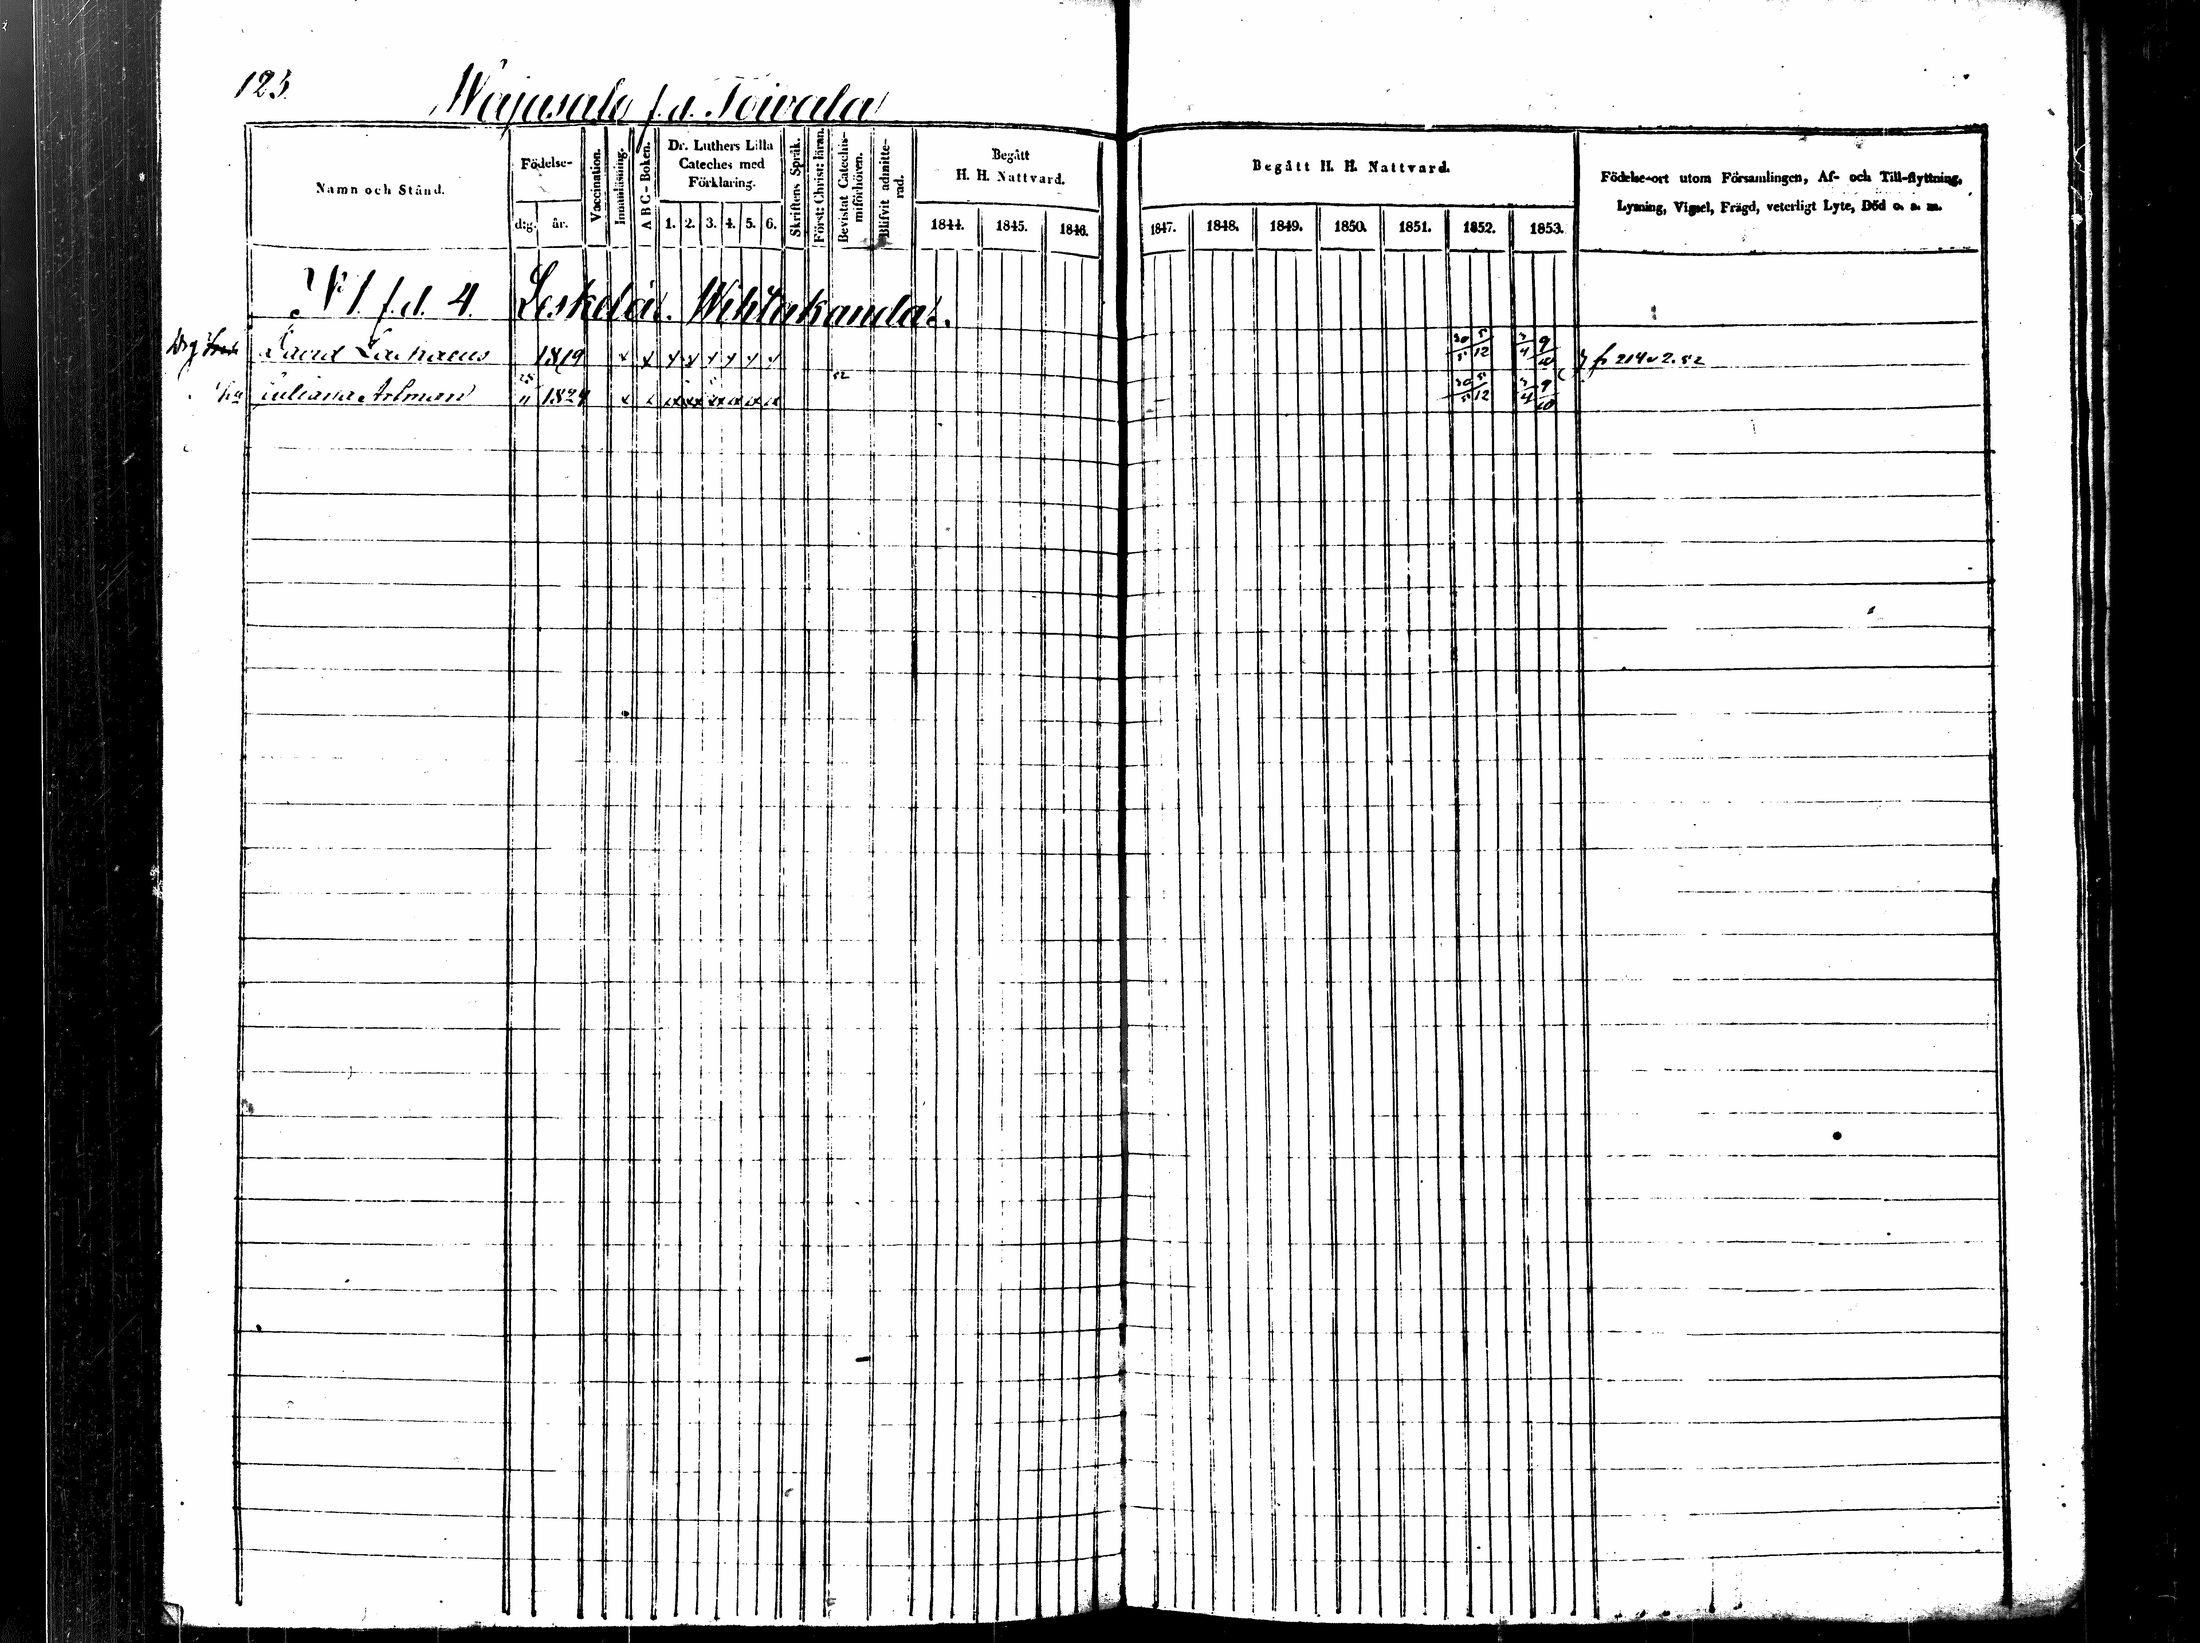 123.
Wajasalo f.d. Toivala
Namn och Stånd.
Födelse-
d:g. år.
Vaccination.
Innanläsning.
A B C - Boken.
Dr. Luthers Lilla
Cateches med
Förklaring.
1. 2. 3. 4. 5. 6.
Skriftens Språk.
Först: Christ: läran.
Bevistat Catechis-
miförhören.
Blifvit admitte-
rad.
Begått
H. H. Nattvard.
1844. 1845. 1846.
Begått H. H. Nattvard.
1847. 1848. 1849. 1850. 1851. 1852. 1853.
Födelse-ort utom Församlingen, Af- och Till-flyttning,
Lysning, Vigsel, Frägd, veterligt Lyte, Död o. s. m.
N 1 f.d. 4. Leskelä
David Zachaeus 1819 x x 30/5 5/12 3/4 9/10 fr 214 v 2. 52
Juliana Artman 25/11 1824 x x 52 30/5 5/12 3/4 9/10